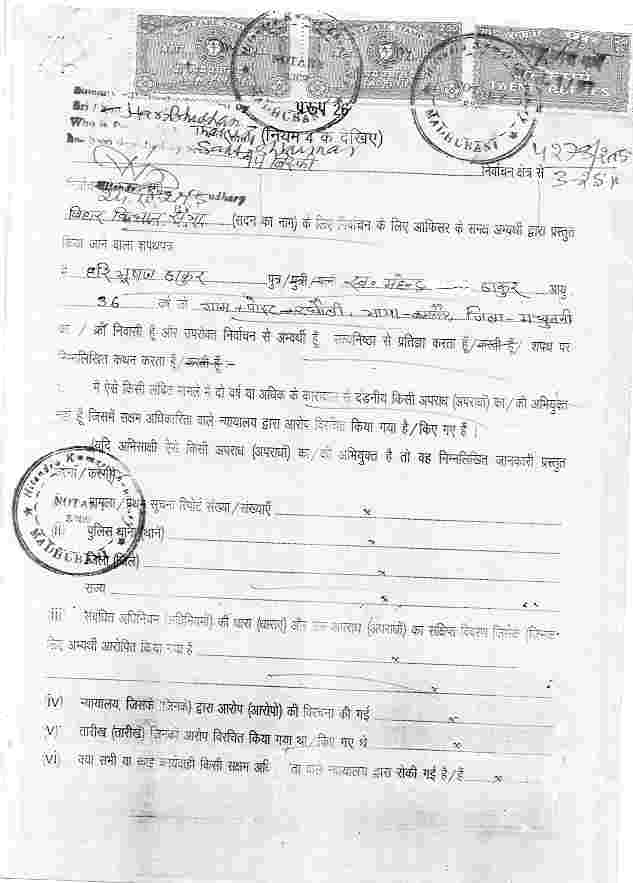 WELFARE STAMP
NOTARY
MADHUBANI
TWENTY RUPEES
प्ररूप 26
(नियम 4 के देखिए)
Hari Bhushan
Who is
4273/2005
निर्वाचन क्षेत्र से
बिहार विधान सभा (सदन का नाम) के लिए निर्वाचन के लिए आफिसर के समक्ष अभ्यर्थी द्वारा प्रस्तुत
किया जाने वाला शपथपत्र
हरि भूषण ठाकुर पुत्र/पुत्री/पत्नी स्व० महेन्द्र ठाकुर आयु
36 ग्राम-पोस्ट- जिला-मधुबनी
का / की निवासी हूँ और उपरोक्त निर्वाचन से अभ्यर्थी हूँ सत्यनिष्ठा से प्रतिज्ञा करता हूँ/करती हूँ/ शपथ पर
निम्नलिखित कथन करता हूँ/करती हूँ :-
मैं ऐसे किसी लंबित मामले में दो वर्ष या अधिक के कारावास से दंडनीय किसी अपराध (अपराधों) का/की अभियुक्त
नहीं हूँ जिसमें सक्षम अधिकारिता वाले न्यायालय द्वारा आरोप विरचित किया गया है/किए गए हैं ।
(यदि अभिसाक्षी ऐसे किसी अपराध (अपराधों) का/की अभियुक्त है तो वह निम्नलिखित जानकारी प्रस्तुत
करेगा/करेगी)
Hitendra Kumar
NOTARY
MADHUBANI
मामला/प्रथम सूचना रिपोर्ट संख्या/संख्याएँ x
(ii) पुलिस थाना (थाने) x
जिला (जिले) x
राज्य x
iii) संबंधित अधिनियम (अधिनियमों) की धारा (धाराएं) और उस अपराध (अपराधों) का संक्षिप्त विवरण जिसके (जिनके
लिए अभ्यर्थी आरोपित किया गया है x
x
iv) न्यायालय, जिसके (जिनके) द्वारा आरोप (आरोपों) की विरचना की गई x
v) तारीख (तारीखें) जिनको आरोप विरचित किया गया था/किए गए थे x
(vi) क्या सभी या कोई कार्यवाही किसी सक्षम अधि ता वाले न्यायालय द्वारा रोकी गई है/हैं x